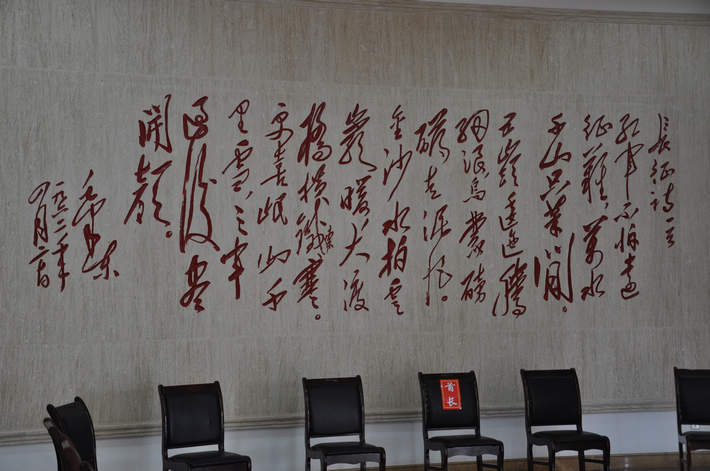 長征詩一首
紅軍不怕遠
征難萬水
千山只等閒。
五嶺逶迤騰
細浪烏蒙磅
礴走泥丸。
金沙水拍雲
巖暖大渡
橋橫鐵索寒。
更喜岷山千
里雪,三軍
過後盡
開顏。
毛澤東
一九六二年
四月二十日
首长